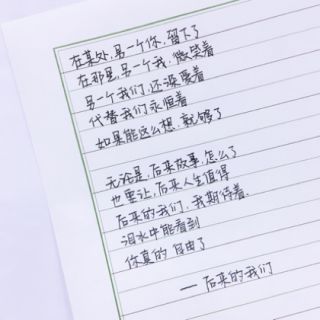 在某处,另一个你,留下了
在那里,另一个我,微笑着
另一个我们,还深爱着
代替我们永恒着
如果能这么想,就够了
无论是,后来故事,怎么了
也要让,后来人生值得
后来的我们,我期待着.
泪水中能看到
你真的 自由了
——后来的我们